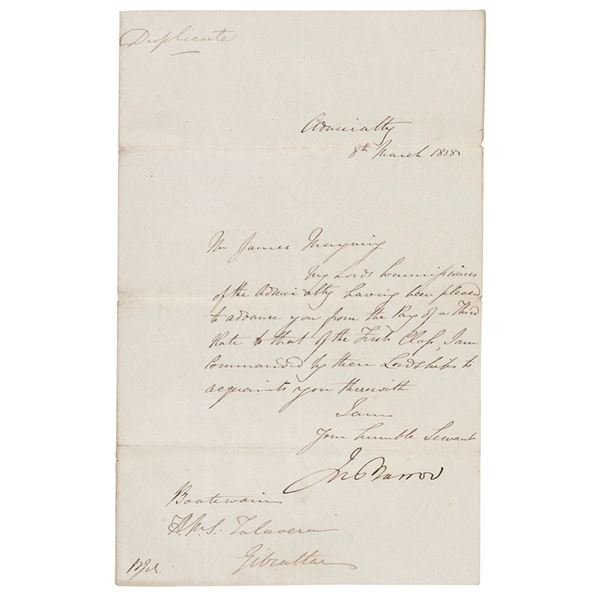 Duplicate
Admiralty
8th March 1838
Mr James
My Lords Commissioners
of the Admiralty having been pleased
to advance you from the Pay of a Third
Rate to that of the First Class, I am
Commanded by their Lordships to
acquaint you therewith
I am
Your humble Servant
Jn Barrow
Boatswain
H.M.S. Talavera
Gibraltar